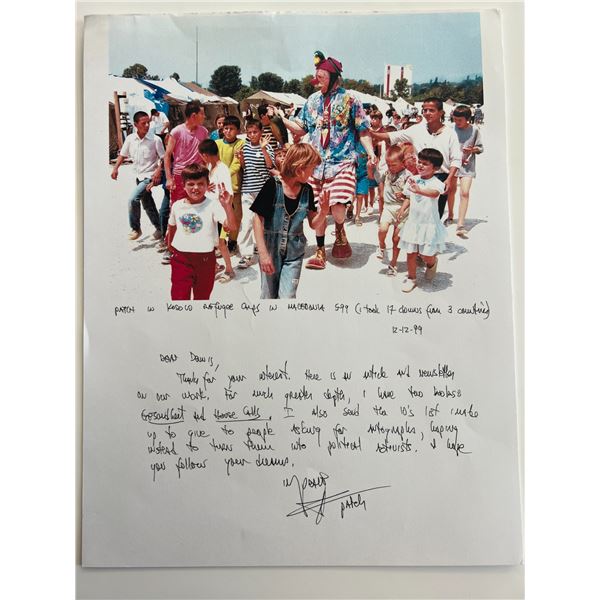 PATCH IN KOSOVO REFUGEE CAMPS IN MACEDONIA 5-99 (I took 17 clowns from 3 countries)
12-12-99
Dear Dennis,
Thanks for your interest. Here is an article and newsletter
on our work. For much greater depth, I have two books
Gesundheit and House Calls. I also send the 10's list I make
up to give to people asking for autographs, hoping
instead to turn them into political activists. I hope
you follow your dreams.
in peace
patch